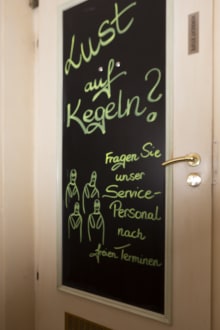 Lust
auf
Kegeln?
Fragen Sie
unser
Service-
Personal
nach
freien Terminen